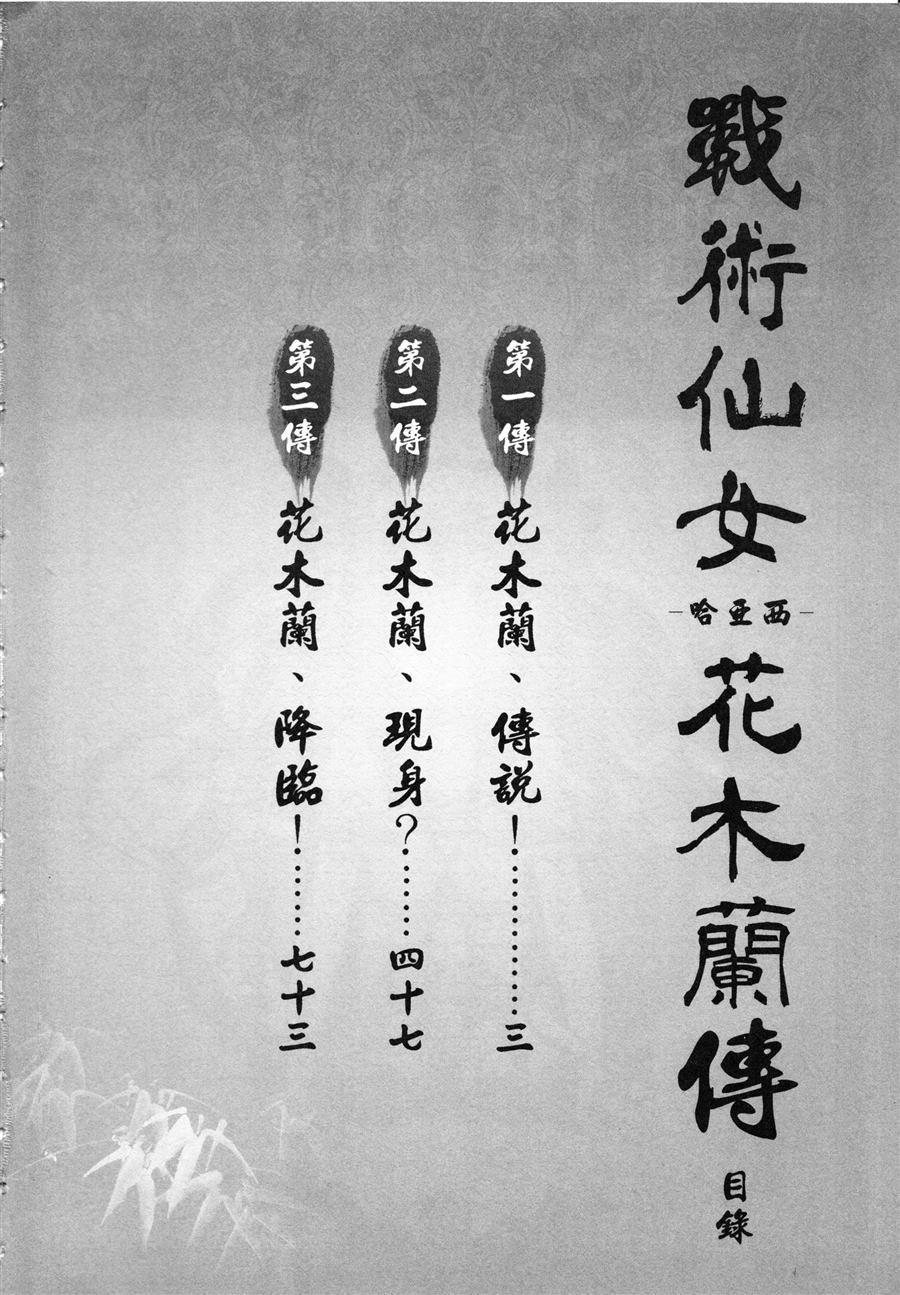 戰術仙女
-哈亚西-
花木蘭傳
目錄
第一傳 花木蘭、傳説!…………三
第二傳 花木蘭、現身?………四十七
第三傳 花木蘭、降臨!………七十三